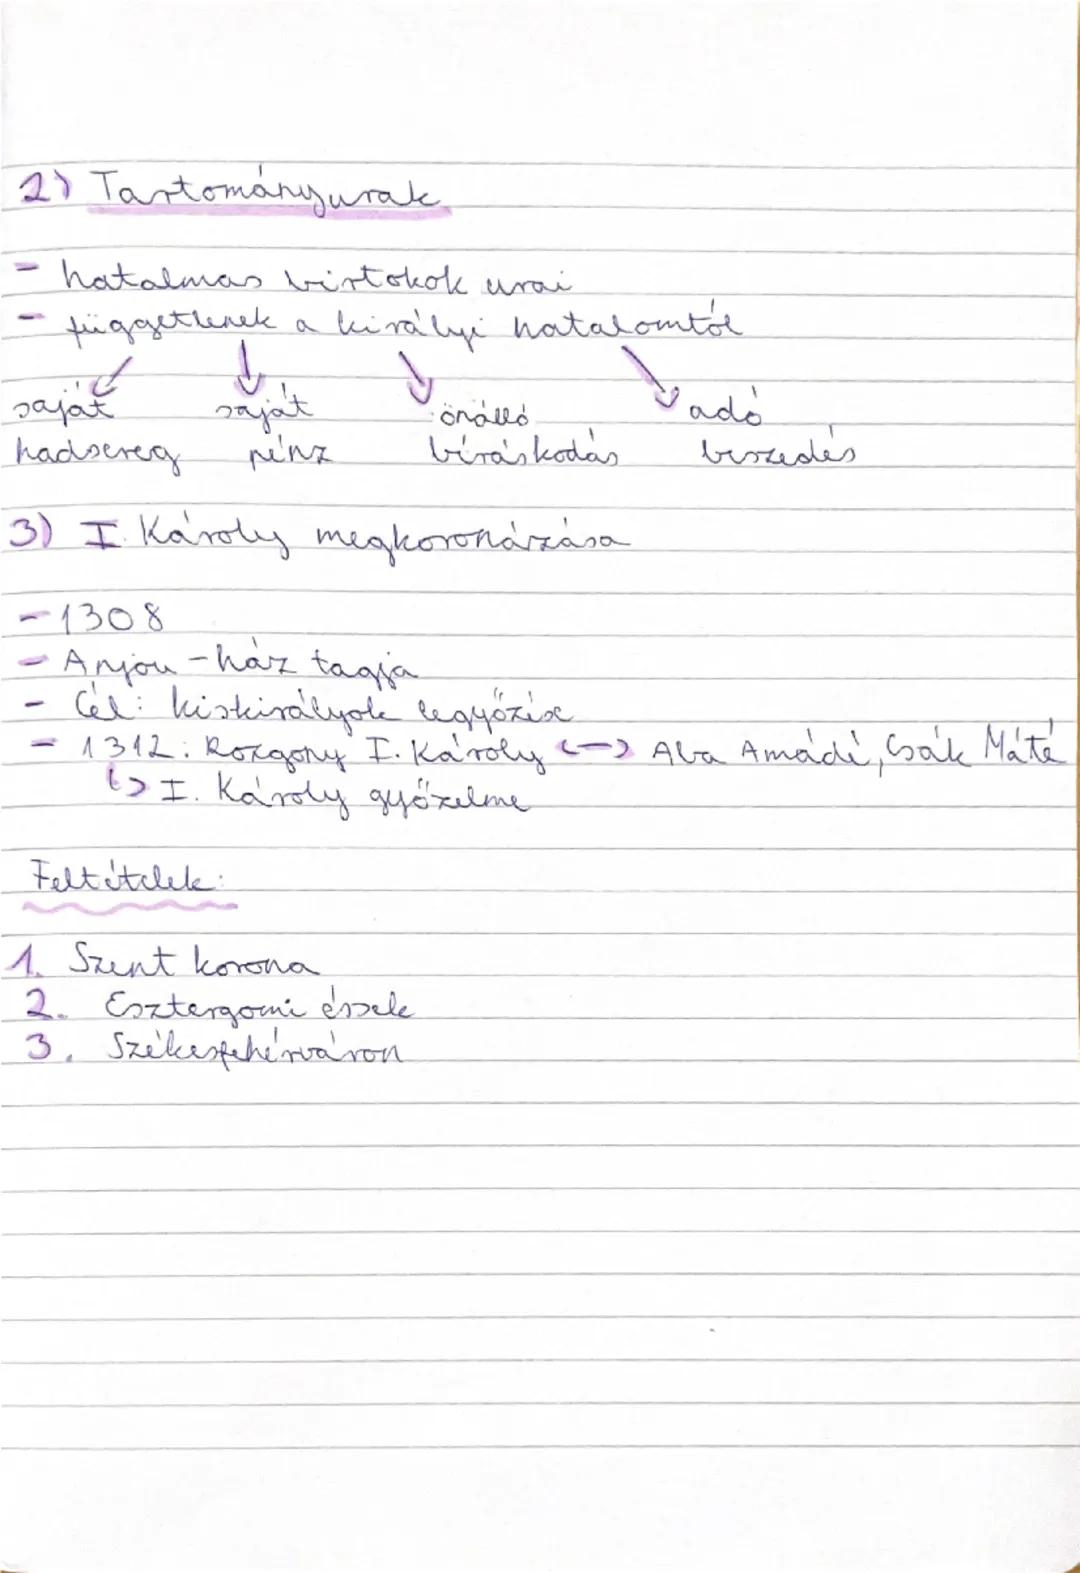 2) Tartományurak
- hatalmas birtokok urai
- függetlenek a királyi hatalomtól
saját saját önálló adó
hadsereg pénz bíráskodás beszedés
3) I. Károly megkoronázása
- 1308
- Anjou-ház tagja
- Cél: kiskirályok legyőzése
- 1312: Rozgony I. Károly <-> Aba Amádé, Csák Máté
↳ I. Károly győzelme
Feltételek:
1. Szent korona
2. Esztergomi érsek
3. Székesfehérváron